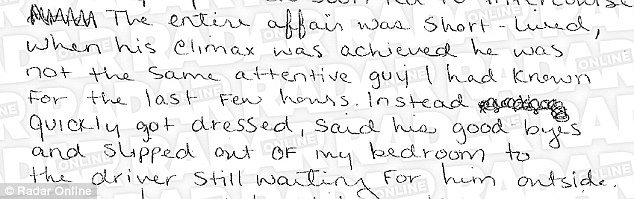 The entire affair was short-lived,
when his climax was achieved he was
not the same attentive guy I had known
for the last few hours. Instead
quickly got dressed, said his good-byes
and slipped out of my bedroom to
the driver still waiting for him outside.
© Radar Online